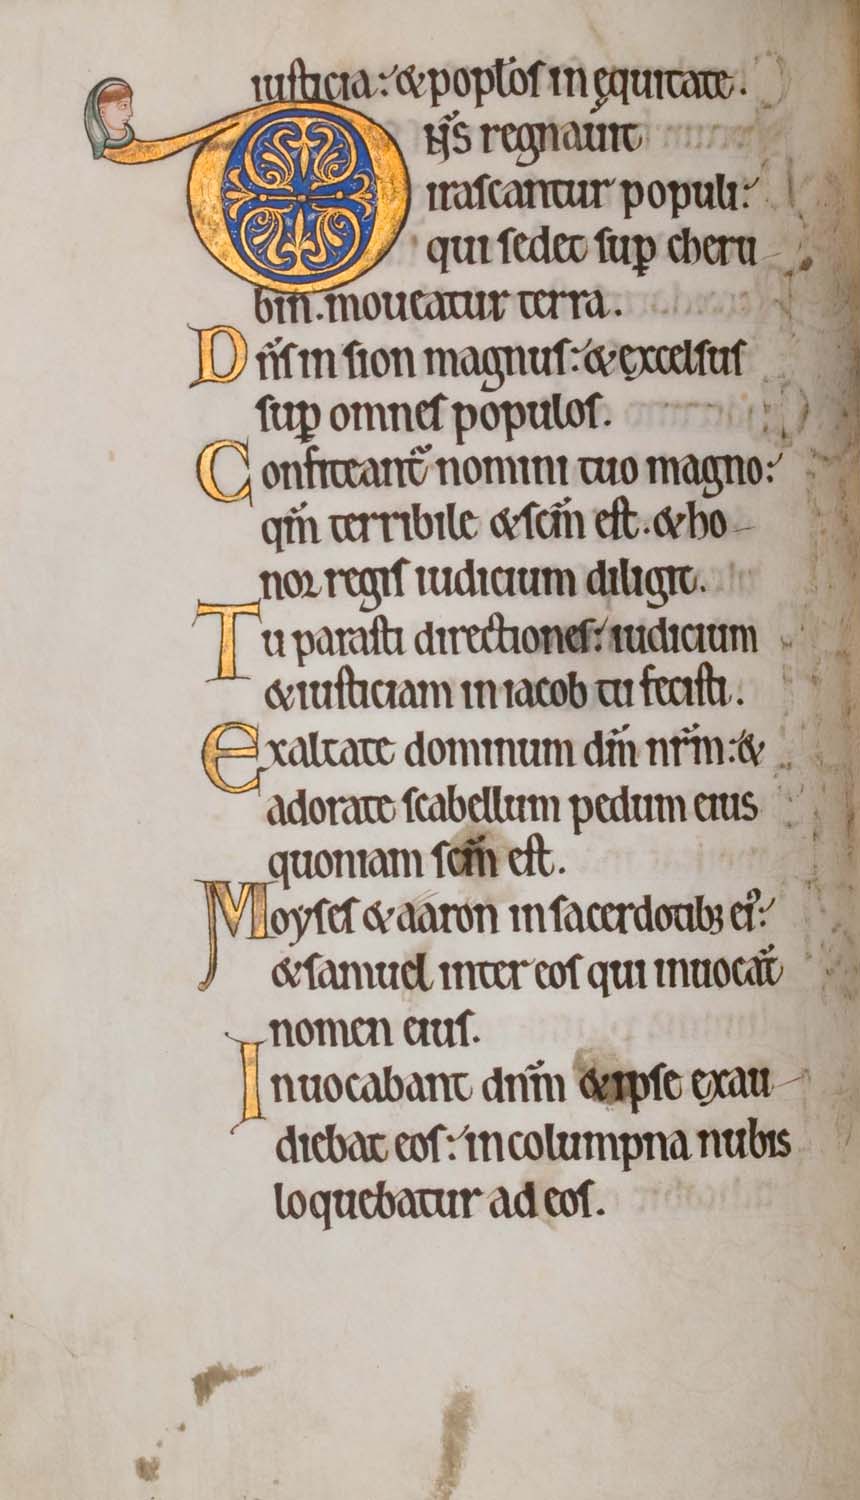 iusticia: & popl̄os in ęquitate.
D n̄s regnauit
irascantur populi:
qui sedet sup̱ cheru
bin. moueatur terra.
D n̄s in sion magnus: & excelsus
sup̱ omnes populos.
Confiteant᷑ nomini tuo magno:
qm̄ terribile & scm̄ est. & ho-
nor regis iudicium diligit.
Tu parasti directiones: iudicium
& iusticiam in iacob tu fecisti.
Exaltate dominum dm̄ nr̄m: &
adorate scabellum pedum eius
quoniam scm̄ est.
Moyses & aaron in sacerdotib; ei᷒:
& samuel inter eos qui inuocāt
nomen eius.
Inuocabant dnm̄ & ipse ęxau-
diebat eos: in columpna nubis
loquebatur ad eos.